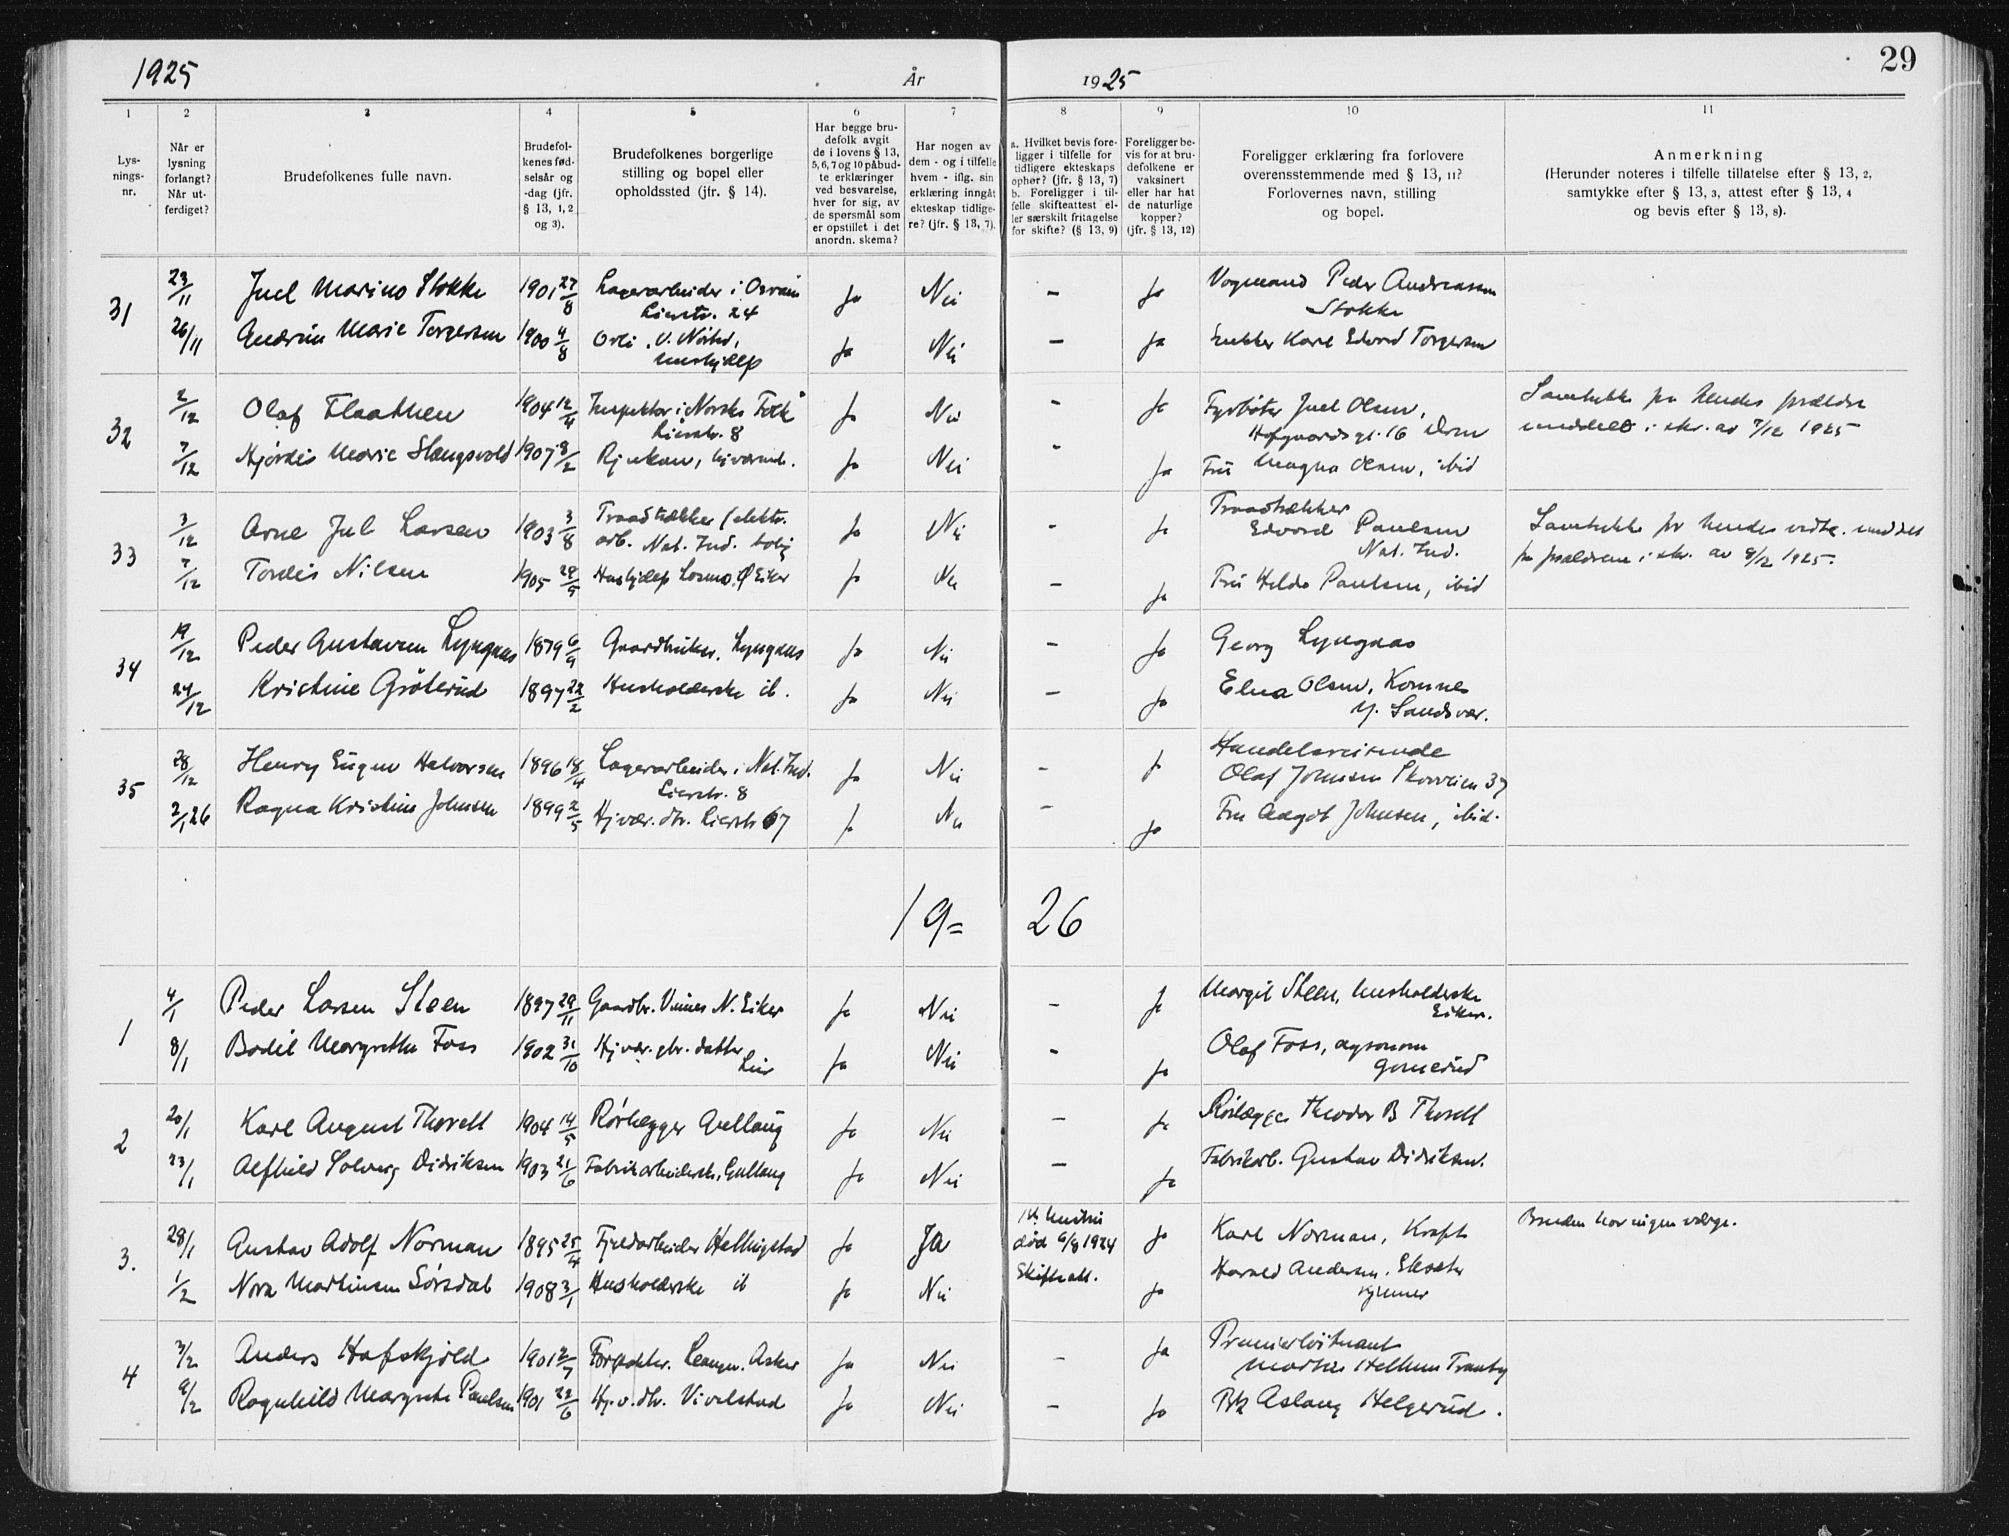 1925
År
1925
29
1
2
3
4
5
6
7
8
9
10
11
Lys-
nings-
nr.
Når er
lysning
forlangt?
Når ut-
ferdiget?
Brudefolkenes fulle navn.
Brudefol-
kenes fød-
selsår og
-dag (jfr.
§ 13, 1, 2
og 3).
Brudefolkenes borgerlige
stilling og bopel eller
opholdssted (jfr. § 14).
Har begge bru-
defolk avgit
de i lovens § 13,
5, 6, 7 og 10 påbud-
te erklæringer
ved besvarelse,
hver for sig, av
de spørsmål som
er opstillet i det
anordn. skema?
Har nogen av
dem - og i tilfelle
hvem - iflg. sin
erklæring inngåt
ekteskap tidlige-
re? (jfr. § 13, 7).
a. Hvilket bevis fore-
ligger i tilfelle for
tidligere ekteskaps
ophør? (jfr. § 13, 7)
b. Foreligger i til-
felle skifteattest el-
ler særskilt fritagelse
for skifte? (§ 13, 9)
Foreligger be-
vis for at bru-
defolkene er
vaksinert
eller har hat
de naturlige
kopper?
(jfr. § 13, 12)
Foreligger erklæring fra forlovere
overensstemmende med § 13, 11?
Forlovernes navn, stilling
og bopel.
Anmerkning
(Herunder noteres i tilfelle tillatelse efter § 13, 2,
samtykke efter § 13, 3, attest efter § 13, 4
og bevis efter § 13, 8).
31
23/11 Juel Marino Stokke 1901 27/8 Lagerarbeider i Osram Ja Nei - Ja Vognmand Peder Andreassen
Lierstr. 24 Stokke
26/11 Marie Torgersen 1900 4/8 Ja Nei - Ja Enkker Karl Edvard Torgersen
Hushjelp
32
2/12 Olaf Flaathen 1904 12/4 Inspektør i Norske Folk Ja Nei - Ja Fyrbøter Juel Olsen, Samtykke fra hendes forældre
Lierstr. 8 Hofgaardsgt. 16 Dram meddelt i skr. av 7/12 1925
7/12 Hjørdis Marie Slangsvold 1907 8/2 Rjukan, hjværend. Ja Nei - Ja Fru Magna Olsen, ibid
33
3/12 Arne Jul Larsen 1903 3/8 Traadtrækker (elektr. Ja Nei - Ja Traadtrækker
arb. Nat. Ind. bolig Edvard Paulsen Samtykke for hendes vedk. meddelt
Nat. Ind. fra forældrene i skr. av 8/12 1925.
7/12 Tordis Nilsen 1905 Hushjelp Ø Eiker Ja Nei - Ja Fru Hilda Paulsen, ibid
34
19/12 Peder Gustavsen Lyngaas 1879 6/9 Gaardbruker, Lyngaas Ja Nei - Ja Georg Lyngaas
24/12 Kristine Grøterud 1897 22/2 Husholderske ib. Ja Nei - Ja Elna Olsen, Komnes
Y. Sandsvær.
35
28/12 Henry Eugen Halvorsen 1896 18/4 Lagerarbeider i Nat. Ind. Ja Nei - Ja Handelsreisende
Lierstr. 8 Olaf Johnsen Skovveien 37
2/1 26 Ragna Kristine Johnsen 1899 2/5 Hjvær. dtr. Lierstr 67 Ja Nei - Ja Fru Aagot Johnsen, ibid.
19= 26
1
4/1 Peder Larsen Steen 1897 29/11 Gaardbr. Vinnes N. Eiker Ja Nei - Ja Margit Steen, Husholderske
Eiker.
8/1 Bodil Margrethe Foss 1902 31/10 Hjvær. gbr. datter Ja Nei - Ja Olaf Foss, agronom
Lier Gomerud
2
20/1 Karl August Thorell 1904 14/5 Rørlegger Gullaug Ja Nei - Ja Rørlægger Theodor B Thorell
23/1 Alfhild Solveig Didriksen 1903 21/6 Fabrikarbeiderske, Gullaug Ja Nei - Ja Fabrikarb. Gustav Didriksen.
3.
28/1 Gustav Adolf Norman 1895 25/4 Fjeldarbeider Hellingstad Ja Ja 1ste hustru Ja Karl Norman, Kraft Bruden har ingen verge.
død 6/8 1924
1/2 Nora Martinsen Sørsdal 1908 3/1 Husholderske ib Ja Nei Skifteatt. Ja Harald Andersen,
4
3/2 Anders Hafskjold 1901 2/7 Asker Ja Nei - Ja Premierløitnant
Martin Hellum Tranby
9/2 Ragnhild Margrete Paulsen 1901 22/6 Hj.v.dtr. Vivelstad Ja Nei - Ja Frk Aslaug Helgerud.